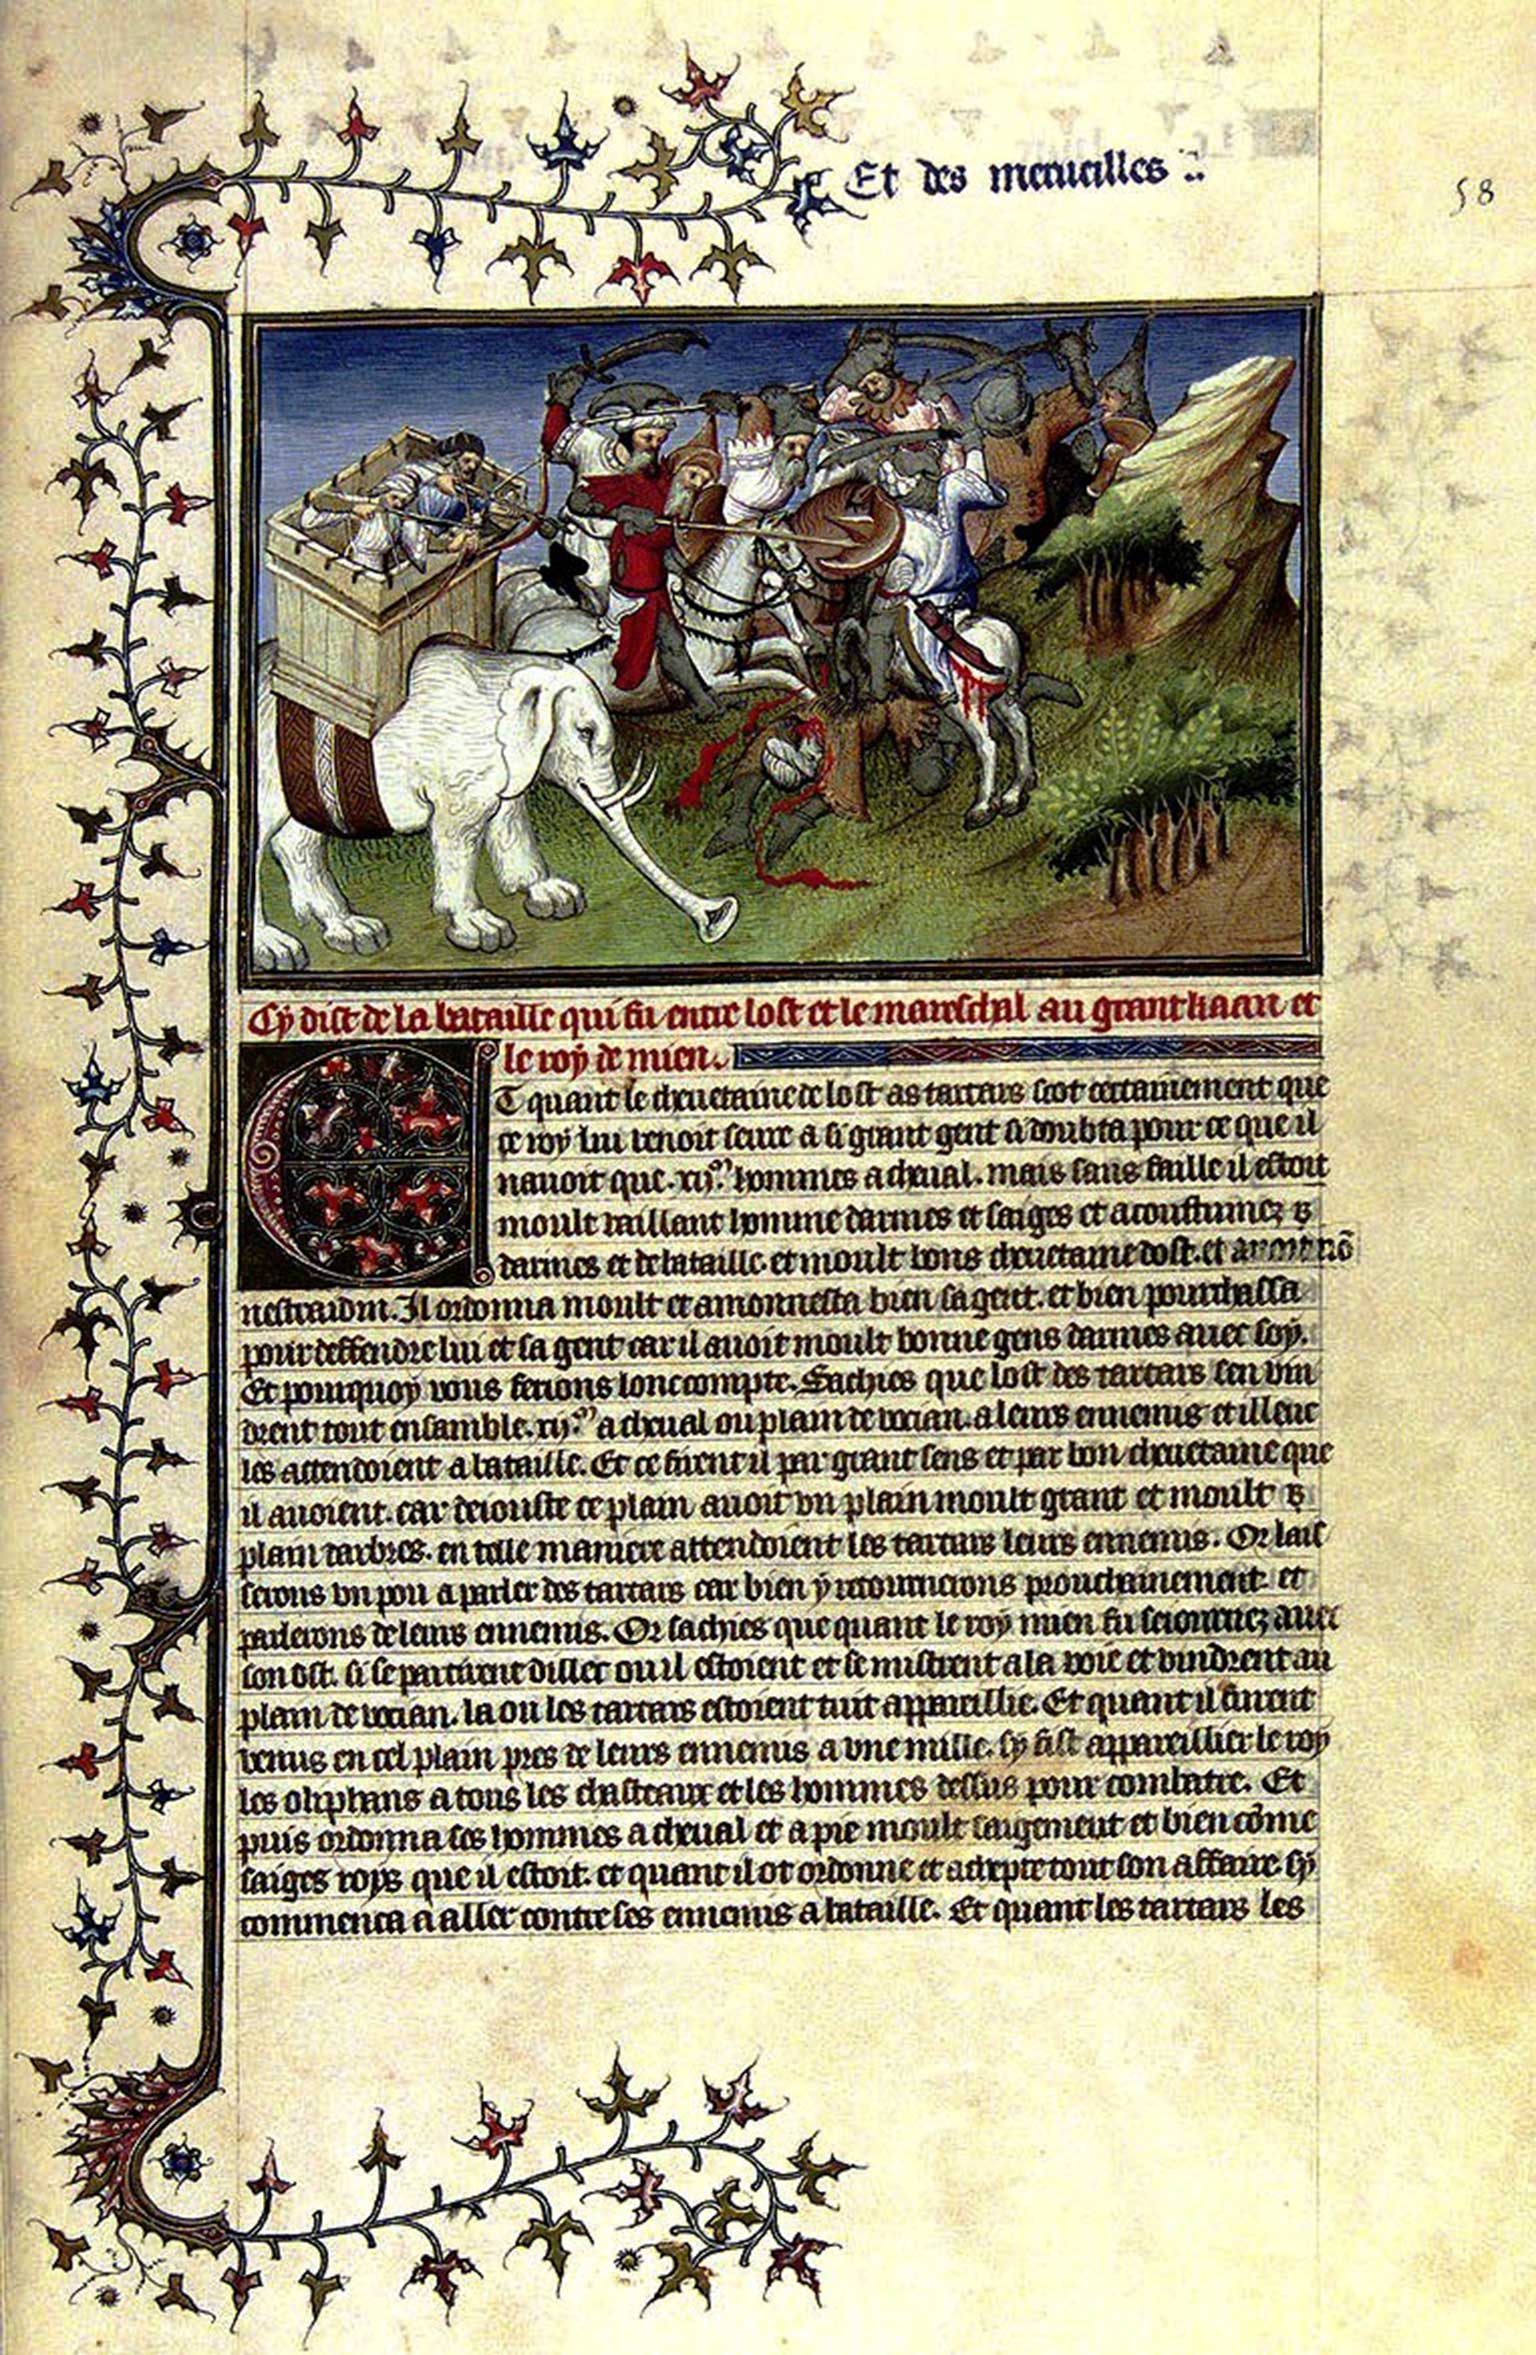 Et des merueilles
58
Cy dist de la bataille qui fu entre lost et le mareschal au grant kaan et
le roy de mien.
Et quant le cheuetaine de lost as tartars scot certainement que
ce roy lui venoit seure a si grant gent si doubta pour ce que il
nauoit que .xij.m hommes a cheual. mais sans faille il estoit
moult vaillant homme darmes et saiges et acoustumez
darmes et de bataille. et moult bons cheuetaine dost. et auoit nõ
nestraidin. Il ordonna moult et amonnesta bien sa gent. et bien pourchassa
pour deffendre lui et sa gent car il auoit moult bonne gens darmes auec soy.
Et pourquoy vous feroions lonc compte. Sachies que lost des tartars sen vin
drent tout ensamble .xij.m a cheual ou plain de vocian. a leurs ennemis et illeuc
les attendoient a bataille. Et ce firent il par grant sens et par bon cheuetaine que
il auoient. car deiouste ce plain auoit vn plain moult grant et moult
plain darbres. en telle maniere attendoient les tartars leurs ennemis. Or lais
serons vn pou a parler des tartars car bien y retournerons prouchainement. et
parlerons de leurs ennemis. Or sachies que quant le roy mien fu seiournez auec
son ost. si se partirent dillec ou il estoient et se mistrent a la voie et vindrent au
plain de vocian. la ou les tartars estoient tuit appareillie. Et quant il furent
venus en cel plain pres de leurs ennemis a vne mille. sy fist appareillier le roy
les oliphans a tous les chasteaux et les hommes dessus pour combatre. Et
puis ordonna ses hommes a cheual et a pie moult saigement et bien cõme
saiges roys que il estoit. et quant il ot ordonne et achepte tout son affaire. sy
commenca a aller contre ses ennemis a bataille. Et quant les tartars les